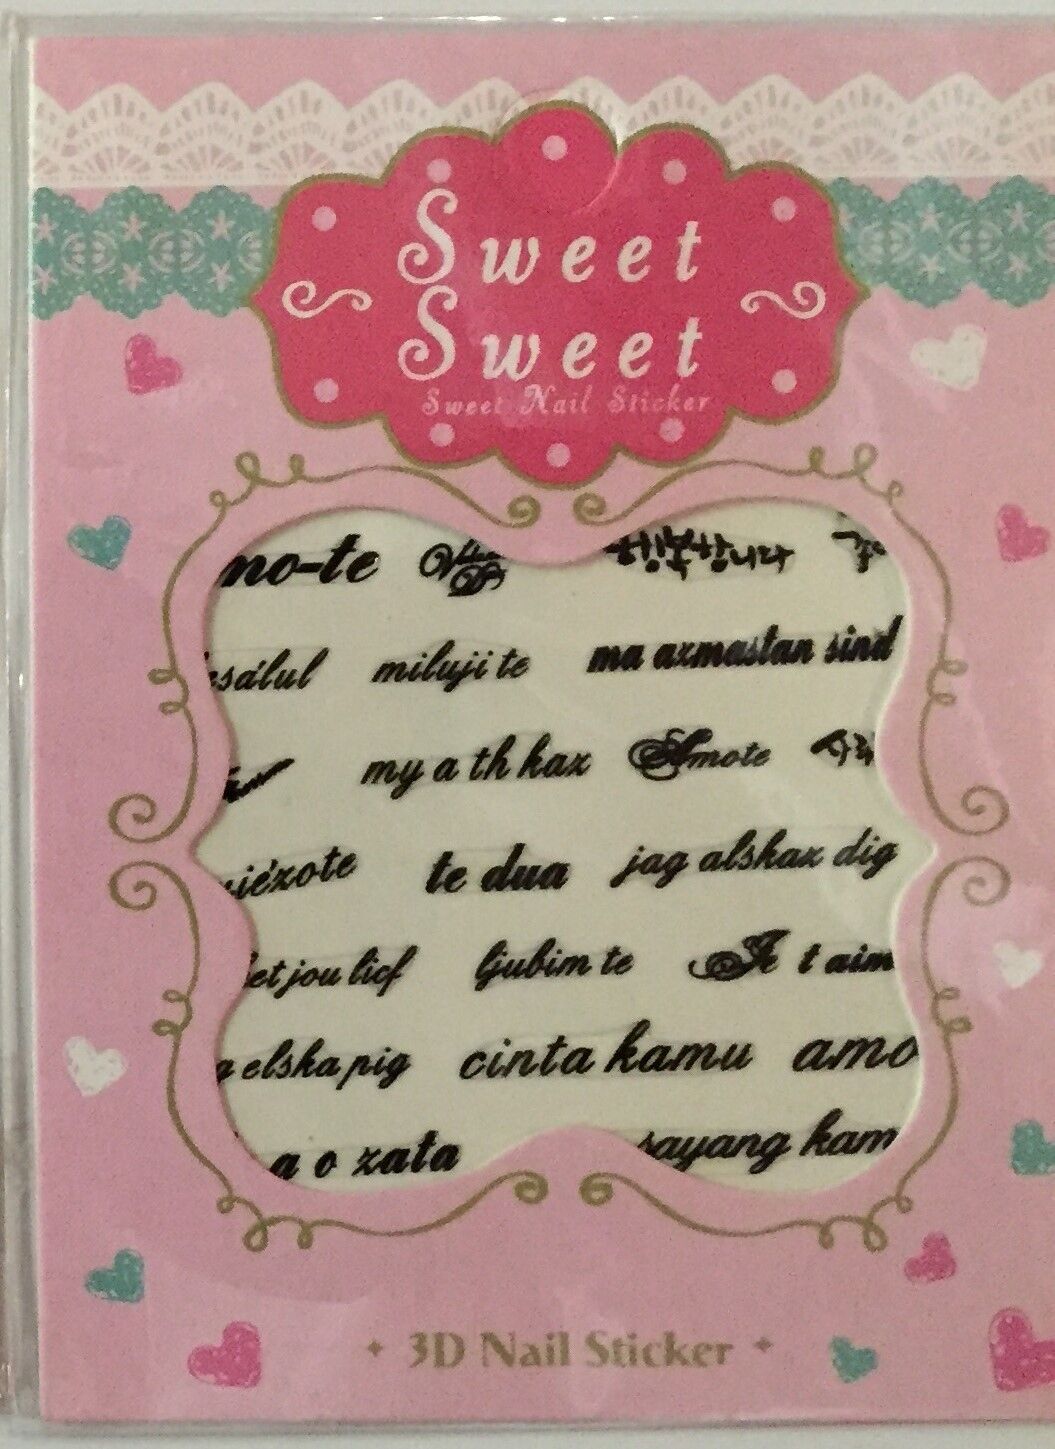 Sweet
Sweet
Sweet Nail Sticker
mo-te
milujite
ma armastan sind
my a th kax
Amote
te dua
jag alskax dig
et jou licf
ljubim te
Je t aim
elska pig
cinta kamu
amo
a o zata
sayang kam
3D Nail Sticker